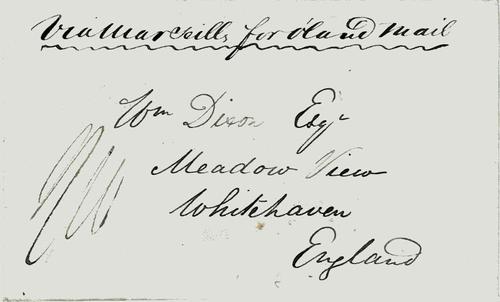 Via Marseills for Óland Mail
Wm Dixon Esqr
Meadow View
Whitehaven
England